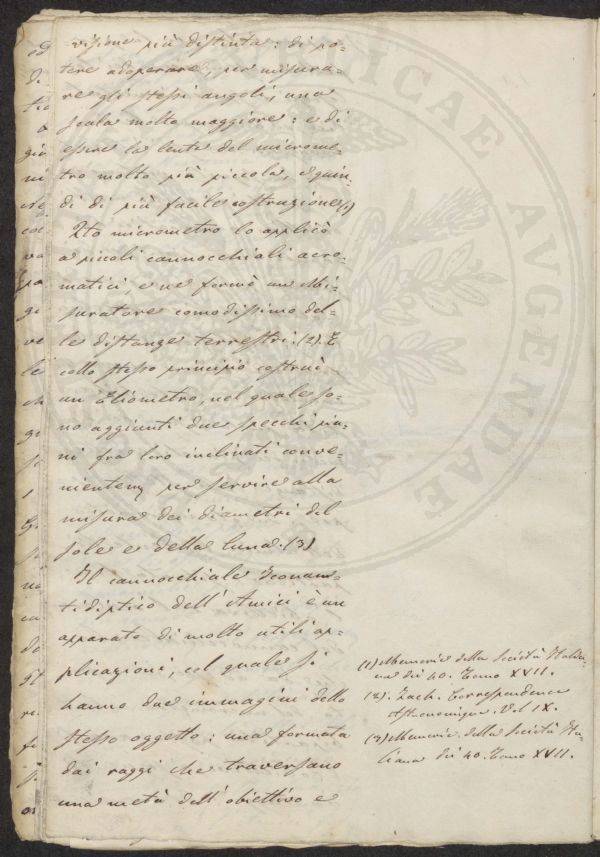 visione più distinta: di po-
tere adoperare, per misura-
re gli stessi angoli, una
scala molto maggiore: e di
essere la lente del microme-
tro molto più piccola, e quin-
di di più facile costruzione (1)
Qto micrometro lo applicò
a piccoli cannocchiali acro-
matici, e ne formò un Mi-
suratore comodissimo del-
le distanze terrestri. (2). E
collo stesso principio costruì
un Eliometro, nel quale so-
no aggiunti due specchi pia-
ni fra loro inclinati conve-
nientem per servire alla
misura dei diametri del
sole e della luna. (3)
Il cannocchiale Iconan-
tidiptico dell'Amici è un
apparato di molto utili ap-
plicazioni, col quale si
hanno due immagini dello
stesso oggetto: una formata
dai raggi che traversano
una metà dell'obiettivo e
(1) Memorie della Società Italia-
na dei 40. Tomo XVII.
(2). Zach. Correspondence
Astronomique. Vol IX.
(3) Memorie della Società Ita-
liana dei 40. Tomo XVII.
LICAE AVGENDAE